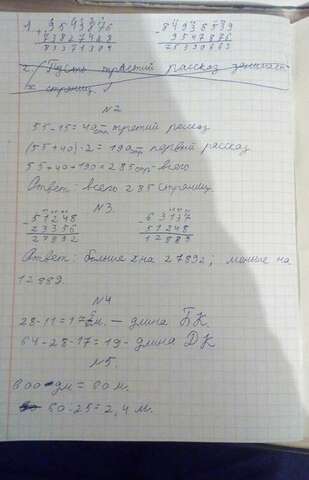 1. + 9543876 - 84936539
73827488 9547876
83371389 25390663
2. Пусть третий рассказ занимает
х страниц.
№2
55-15=40стр третий рассказ
(55+40)·2=190стр первый рассказ
55+40+190=285стр-всего
Ответ: всего 285 страниц.
№3.
- 51248 - 63137
23356 51248
27892 12889
Ответ: больше на 27892; меньше на
12889.
№4
28-11=17см. - длина БК.
64-28-17=19- длина ДК
№5.
600 дм = 60 м.
60:25=2,4 м.